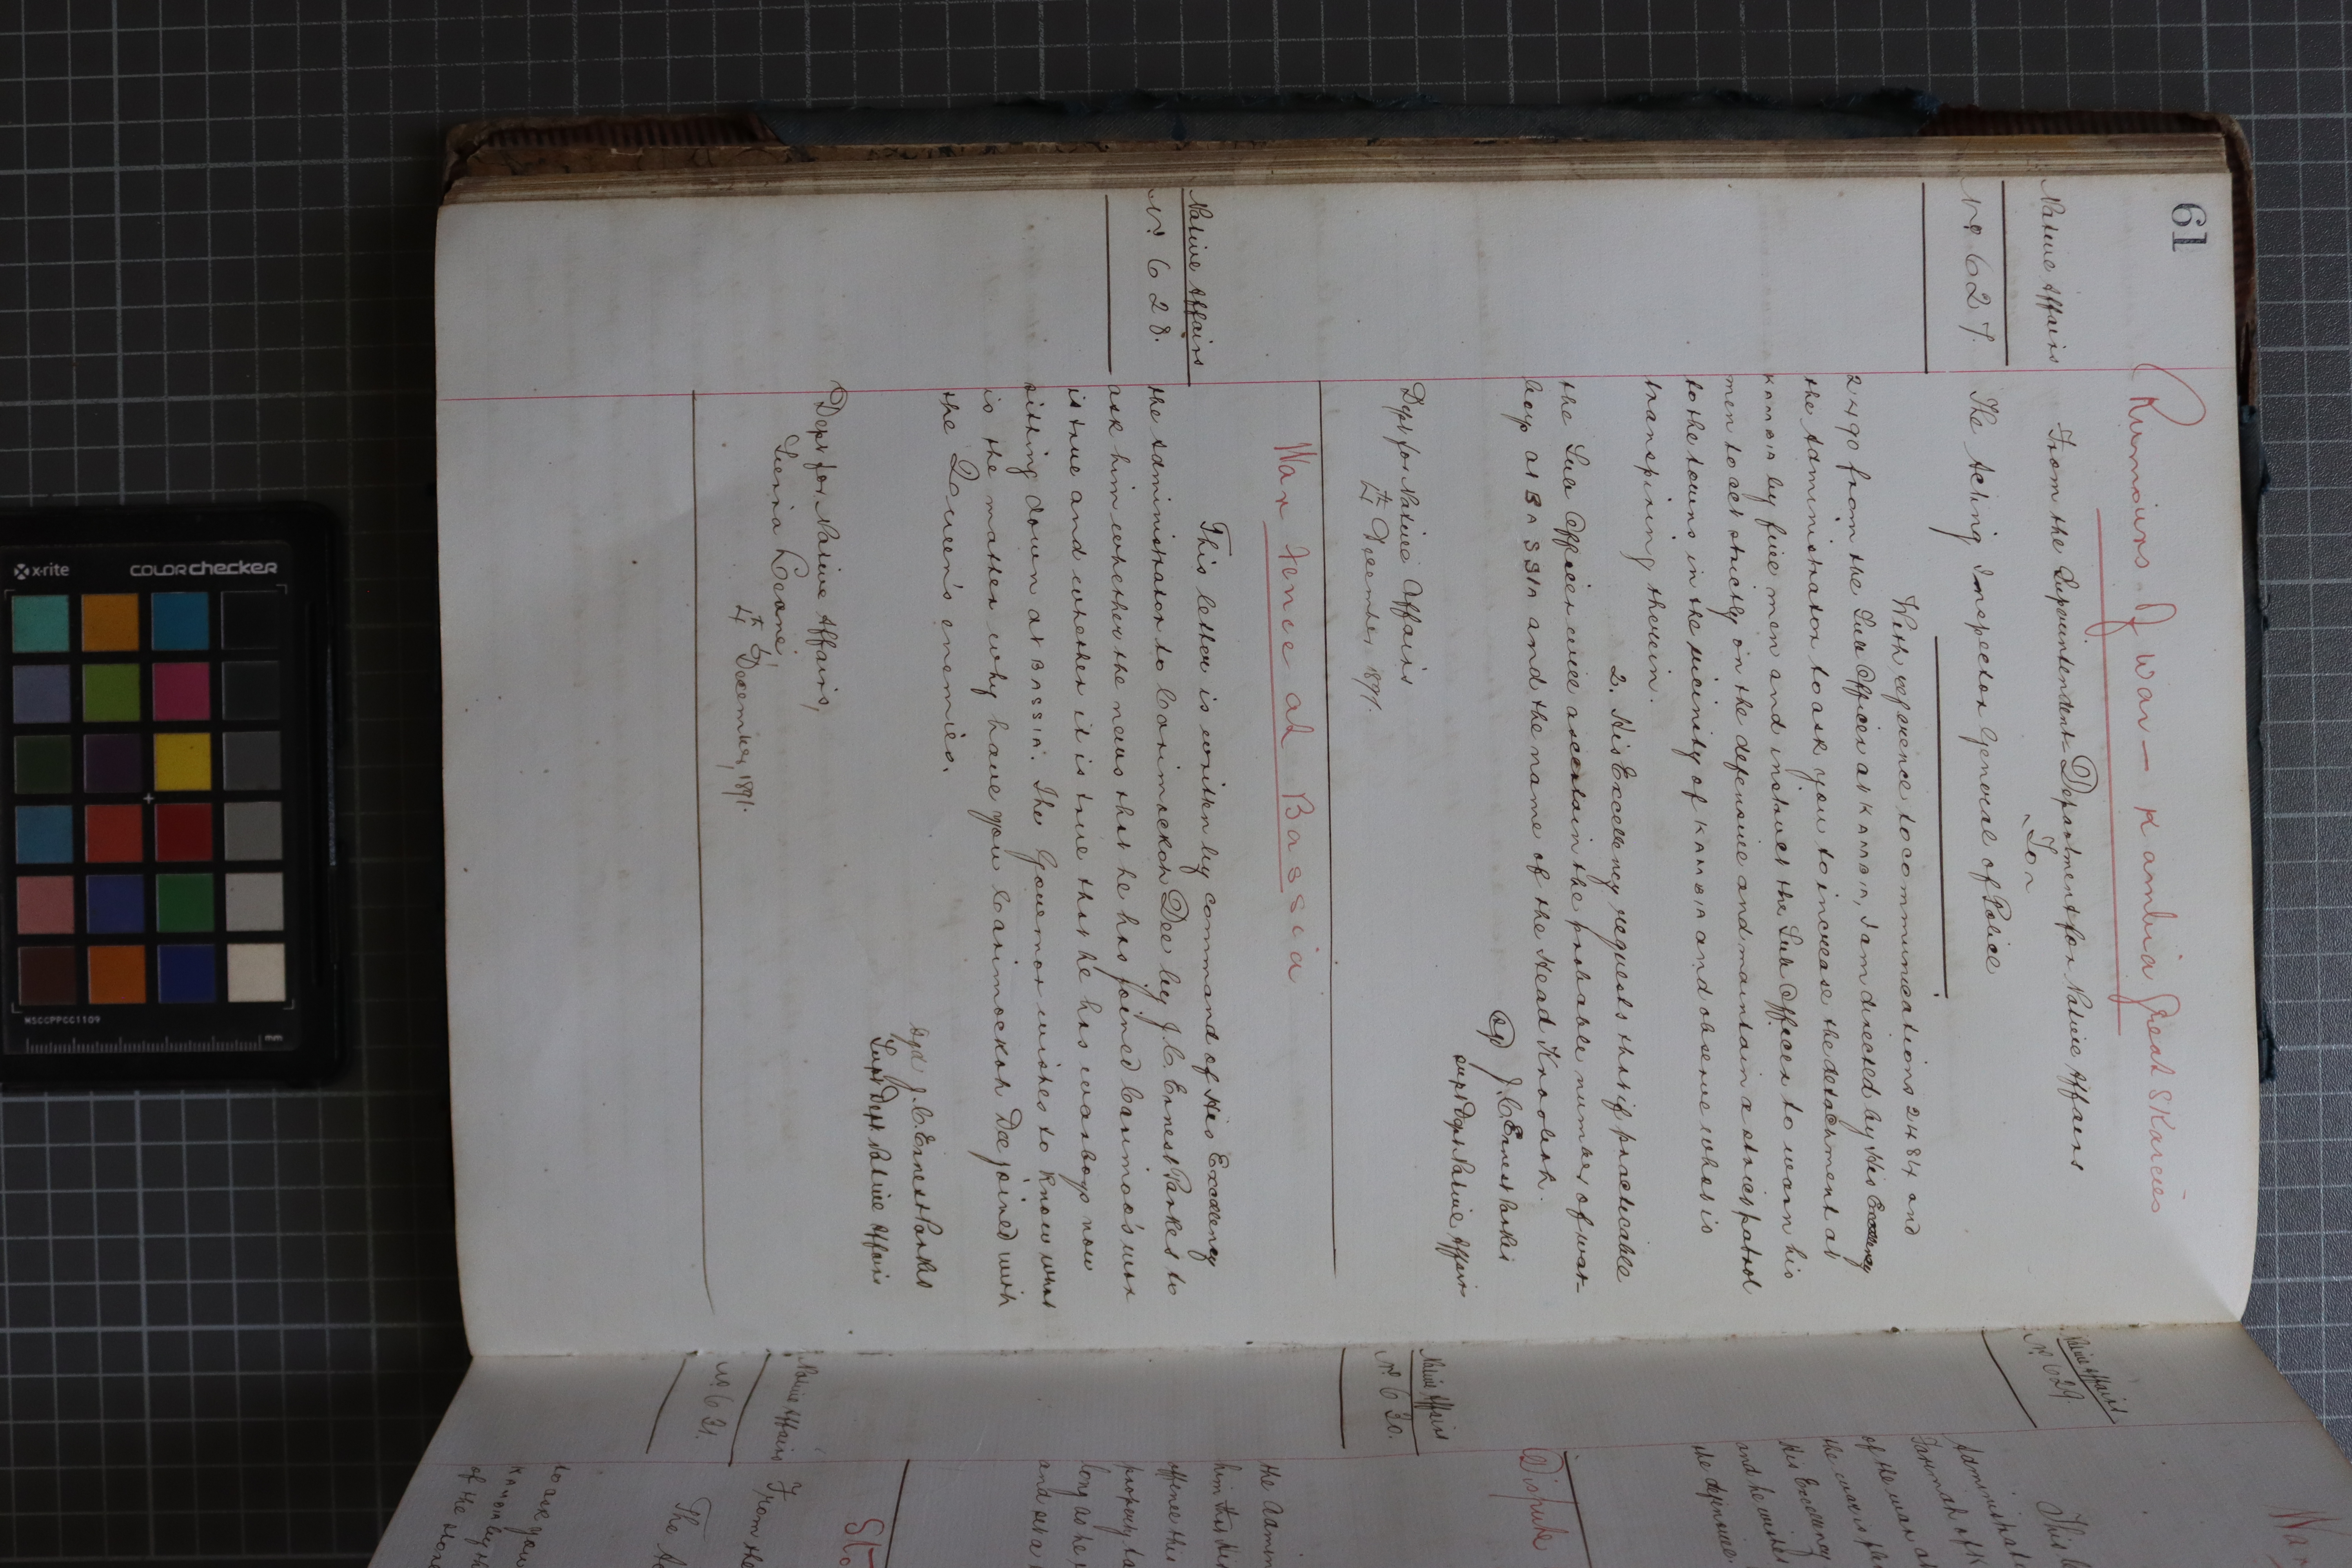 61
Rumours of War — Kambia Great Skarcies
Native Affairs
From the Superintendent Department for Native Affairs
To
No 627.
The Acting Inspector General of Police
With reference to communications 2484 and
2490 from the Sub Officer at KAMBIA, I am directed by His Excellency
the Administrator to ask you to increase the detachment at
KAMBIA by five men and instruct the Sub Officer to warn his
men to act strictly on the defensive and maintain a strict patrol
to the towns in the vicinity of KAMBIA and observe what is
transpiring therein.
2. His Excellency requests that if practicable
the Sub Officer will ascertain the probable number of war-
boys at BASSIA and the name of the Head
J.C. Ernest Parkes
Supt Dept Native Affairs
Dept for Native Affairs
4th December 1891.
War fence at Bassia
Native Affairs
No 628.
This letter is written by command of His Excellency
the Administrator to Carimockoh Dee by J.C. Ernest Parkes to
ask him whether the news that he has joined Carimoo's war
is true and whether it is true that he has warboys now
sitting down at BASSIA. The Governor wishes to know what
is the matter why have you Carimockoh Dee joined with
the Queen's enemies.
Sgd J.C. Ernest Parkes
Supt Dept Native Affairs
Dept for Native Affairs,
Sierra Leone,
4th December, 1891.
Native Affairs
No 629.
This le
Administrat
of the war at
the war is
His Excellency
and he wishes
the defensive
Native Affairs
No 630.
Dispute
the Admin
him that his
offence this
property ta
long as he
and set a
Native Affairs
No 631.
From the
The Ac
to ask you
KAMBIA by th
of the